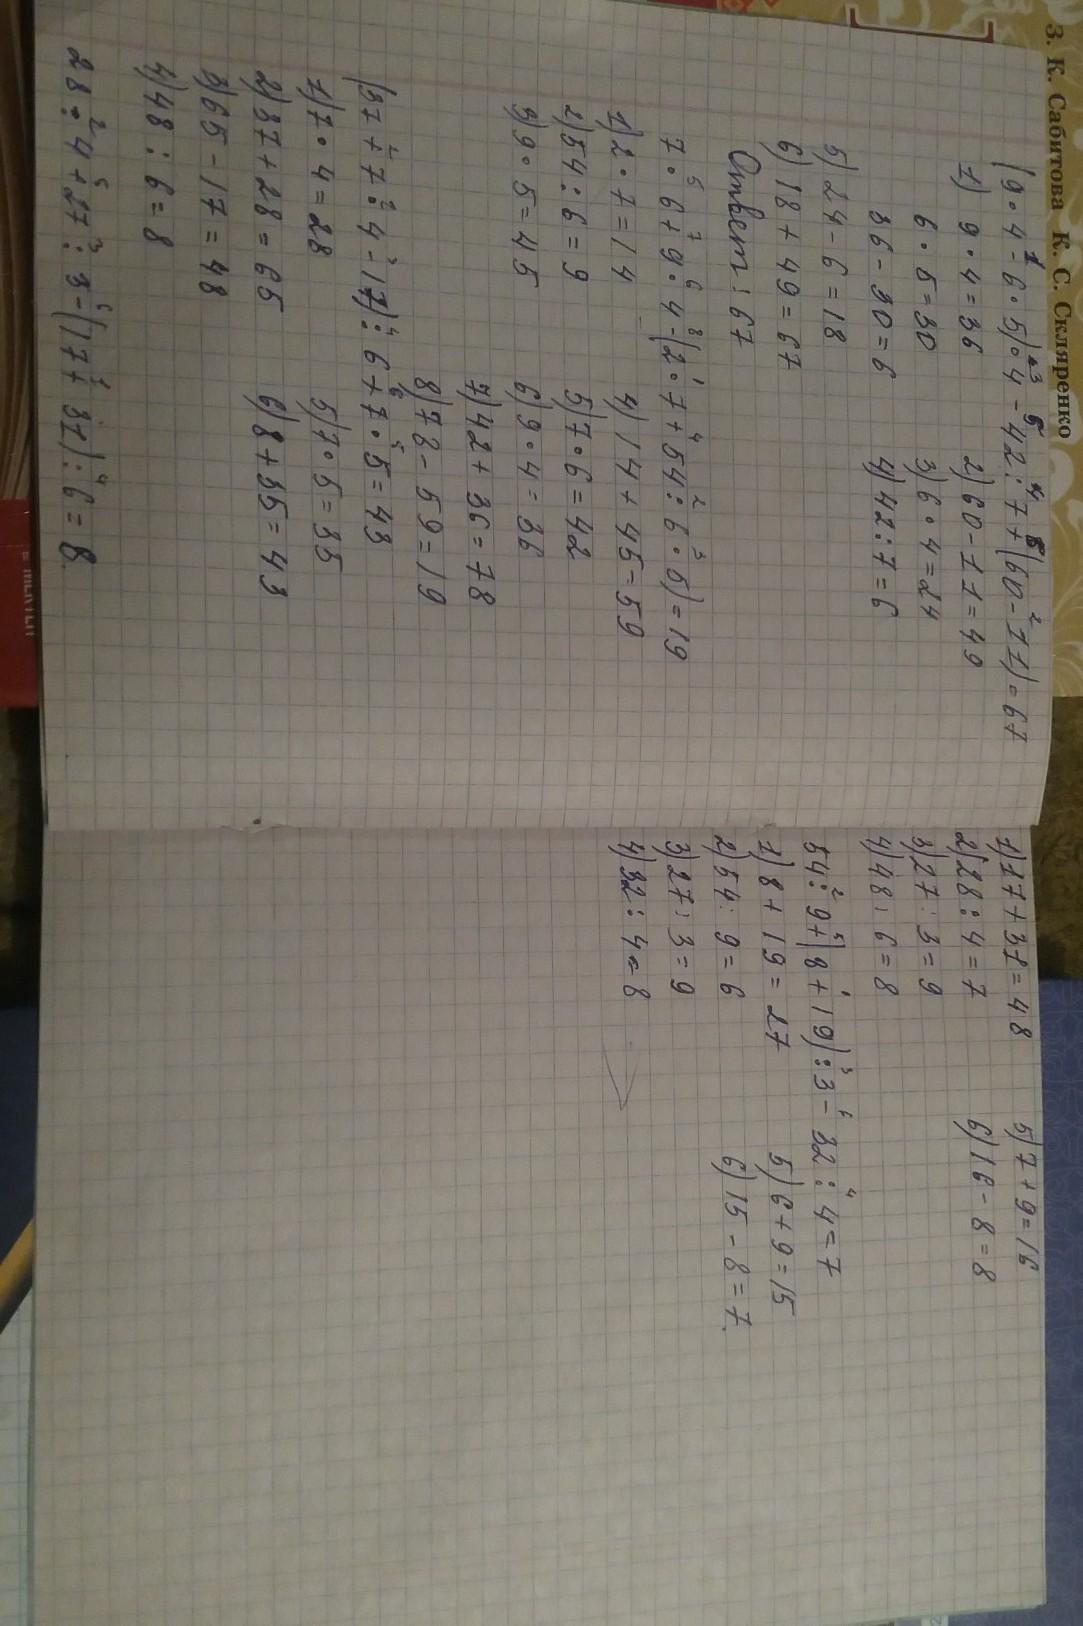 З. К. Сабитова К. С. Скляренко
(9·4-6·5)·4-42:7+(60-11)=67
1) 9·4=36
6·5=30
36-30=6
2) 60-11=49
3) 6·4=24
4) 42:7=6
5) 24-6=18
6) 18+49=67
Ответ: 67
7·6+9·4-(2·7+54:6·5)=19
1) 2·7=14
2) 54:6=9
3) 9·5=45
4) 14+45=59
5) 7·6=42
6) 9·4=36
7) 42+36=78
8) 78-59=19
(37+7·4-17):6+7·5=43
1) 7·4=28
2) 37+28=65
3) 65-17=48
4) 48:6=8
5) 7·5=35
6) 8+35=43
28:4+27:3-(17+31):6=8
1) 17+31=48
2) 28:4=7
3) 27:3=9
4) 48:6=8
5) 7+9=16
6) 16-8=8
54:9+(8+19):3-32:4=7
1) 8+19=27
2) 54:9=6
3) 27:3=9
4) 32:4=8
5) 6+9=15
6) 15-8=7